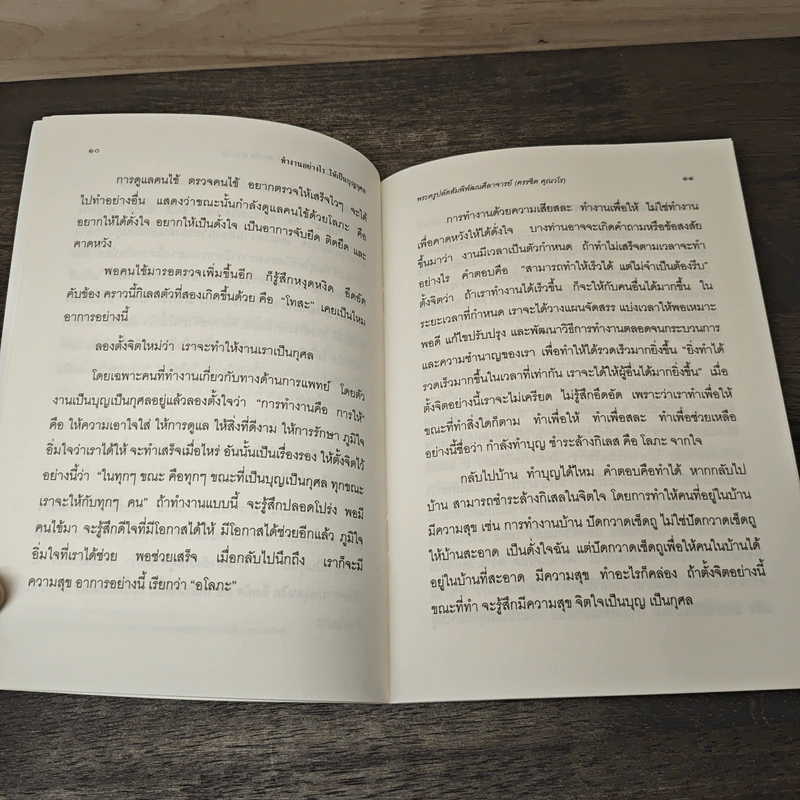 ๑๐
ทำงานอย่างไร..ให้เป็นบุญกุศล
การดูแลคนไข้ ตรวจคนไข้ อยากตรวจให้เสร็จไวๆ จะได้
ไปทำอย่างอื่น แสดงว่าขณะนั้นกำลังดูแลคนไข้ด้วยโลภะ คือ
อยากให้ได้ดั่งใจ อยากให้เป็นดั่งใจ เป็นอาการจับยึด ติดยึด และ
คาดหวัง
พอคนไข้มารอตรวจเพิ่มขึ้นอีก ก็รู้สึกหงุดหงิด อึดอัด
คับข้อง คราวนี้กิเลสตัวที่สองเกิดขึ้นด้วย คือ “โทสะ” เคยเป็นไหม
อาการอย่างนี้
ลองตั้งจิตใหม่ว่า เราจะทำให้งานเราเป็นกุศล
โดยเฉพาะคนที่ทำงานเกี่ยวกับทางด้านการแพทย์ โดยตัว
งานเป็นบุญเป็นกุศลอยู่แล้วลองตั้งใจว่า “การทำงานคือ การให้”
คือ ให้ความเอาใจใส่ ให้การดูแล ให้สิ่งที่ดีงาม ให้การรักษา ภูมิใจ
อิ่มใจว่าเราได้ให้ จะทำเสร็จเมื่อไหร่ อันนั้นเป็นเรื่องรอง ให้ตั้งจิตไว้
อย่างนี้ว่า “ในทุกๆ ขณะ คือทุกๆ ขณะที่เป็นบุญเป็นกุศล ทุกขณะ
เราจะให้กับทุกๆ คน” ถ้าทำงานแบบนี้ จะรู้สึกปลอดโปร่ง พอมี
คนไข้มา จะรู้สึกดีใจที่มีโอกาสได้ให้ มีโอกาสได้ช่วยอีกแล้ว ภูมิใจ
อิ่มใจที่เราได้ช่วย พอช่วยเสร็จ เมื่อกลับไปนึกถึง เราก็จะมี
ความสุข อาการอย่างนี้ เรียกว่า “อโลภะ”
พระครูปลัดสัมพิพัฒนศีลาจารย์ (ครรชิต คุณวโร)
๑๑
การทำงานด้วยความเสียสละ ทำงานเพื่อให้ ไม่ใช่ทำงาน
เพื่อคาดหวังให้ได้ดั่งใจ บางท่านอาจจะเกิดคำถามหรือข้อสงสัย
ขึ้นมาว่า งานมีเวลาเป็นตัวกำหนด ถ้าทำไม่เสร็จตามเวลาจะทำ
อย่างไร คำตอบคือ “สามารถทำให้เร็วได้ แต่ไม่จำเป็นต้องรีบ”
ตั้งจิตว่า ถ้าเราทำงานได้เร็วขึ้น ก็จะให้กับคนอื่นได้มากขึ้น ใน
ระยะเวลาที่กำหนด เราจะได้วางแผนจัดสรร แบ่งเวลาให้พอเหมาะ
พอดี แก้ไขปรับปรุง และพัฒนาวิธีการทำงานตลอดจนกระบวนการ
และความชำนาญของเรา เพื่อทำให้ได้รวดเร็วมากยิ่งขึ้น “ยิ่งทำได้
รวดเร็วมากขึ้นในเวลาที่เท่ากัน เราจะได้ให้ผู้อื่นได้มากยิ่งขึ้น” เมื่อ
ตั้งจิตอย่างนี้เราจะไม่เครียด ไม่รู้สึกอึดอัด เพราะว่าเราทำเพื่อให้
ขณะที่ทำสิ่งใดก็ตาม ทำเพื่อให้ ทำเพื่อสละ ทำเพื่อช่วยเหลือ
อย่างนี้ชื่อว่า กำลังทำบุญ ชำระล้างกิเลส คือ โลภะ จากใจ
กลับไปบ้าน ทำบุญได้ไหม คำตอบคือทำได้ หากกลับไป
บ้าน สามารถชำระล้างกิเลสในจิตใจ โดยการทำให้คนที่อยู่ในบ้าน
มีความสุข เช่น การทำงานบ้าน ปัดกวาดเช็ดถู ไม่ใช่ปัดกวาดเช็ดถู
ให้บ้านสะอาด เป็นดั่งใจฉัน แต่ปัดกวาดเช็ดถูเพื่อให้คนในบ้านได้
อยู่ในบ้านที่สะอาด มีความสุข ทำอะไรก็คล่อง ถ้าตั้งจิตอย่างนี้
ขณะที่ทำ จะรู้สึกมีความสุข จิตใจเป็นบุญ เป็นกุศล